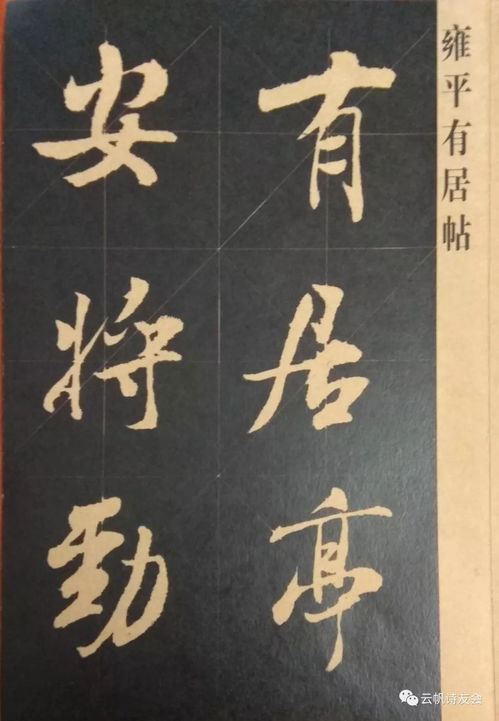 雍平有居帖
有居亭
安将勁
云帆诗友会